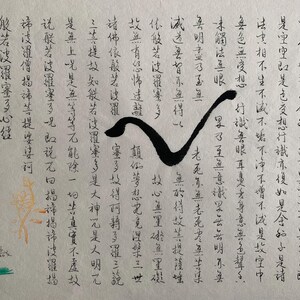 是空空即是色受想行識亦復如是舍利子是諸
法空相不生不滅不垢不淨不增不減是故空中
無色無受想行識無眼耳鼻舌身意無色聲香
味觸法無眼界乃至無意識界無無明亦無
無明盡乃至無老死亦無老死盡無苦集
滅道無智亦無得以無所得故菩提薩埵
依般若波羅蜜多故心無罣礙無罣礙
故無有恐怖遠離顛倒夢想究竟涅槃三世
諸佛依般若波羅蜜多故得阿耨多羅三藐
三菩提故知般若波羅蜜多是大神咒是大明咒
是無上咒是無等等咒能除一切苦真實不虛故
說般若波羅蜜多咒即說咒曰揭諦揭諦波羅揭
諦波羅僧揭諦菩提娑婆訶
般若波羅蜜多心經